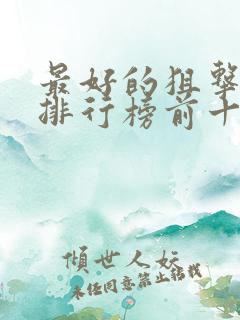 最好的狙击
排行榜前十
倾世人妖
未经同意禁止转载